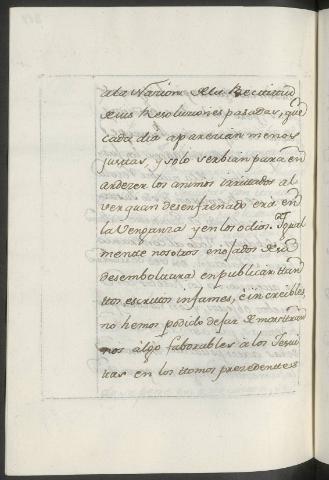 ala Nacion de la Rectitud
de sus Resoluciones pasadas, que
cada dia aparecian menos
justas, y solo serbian para en
ardezer los animos irritados al
ver quan desenfrenado era en
la Venganza y en los odios. Igual
mente nosotros enojados de su
desemboltura en publicar tan
ttos escrittos infames, é increibles
no hemos podido dejar de mostrar
nos algo faborables à los Jesui
tas en los ttomos prezedentes